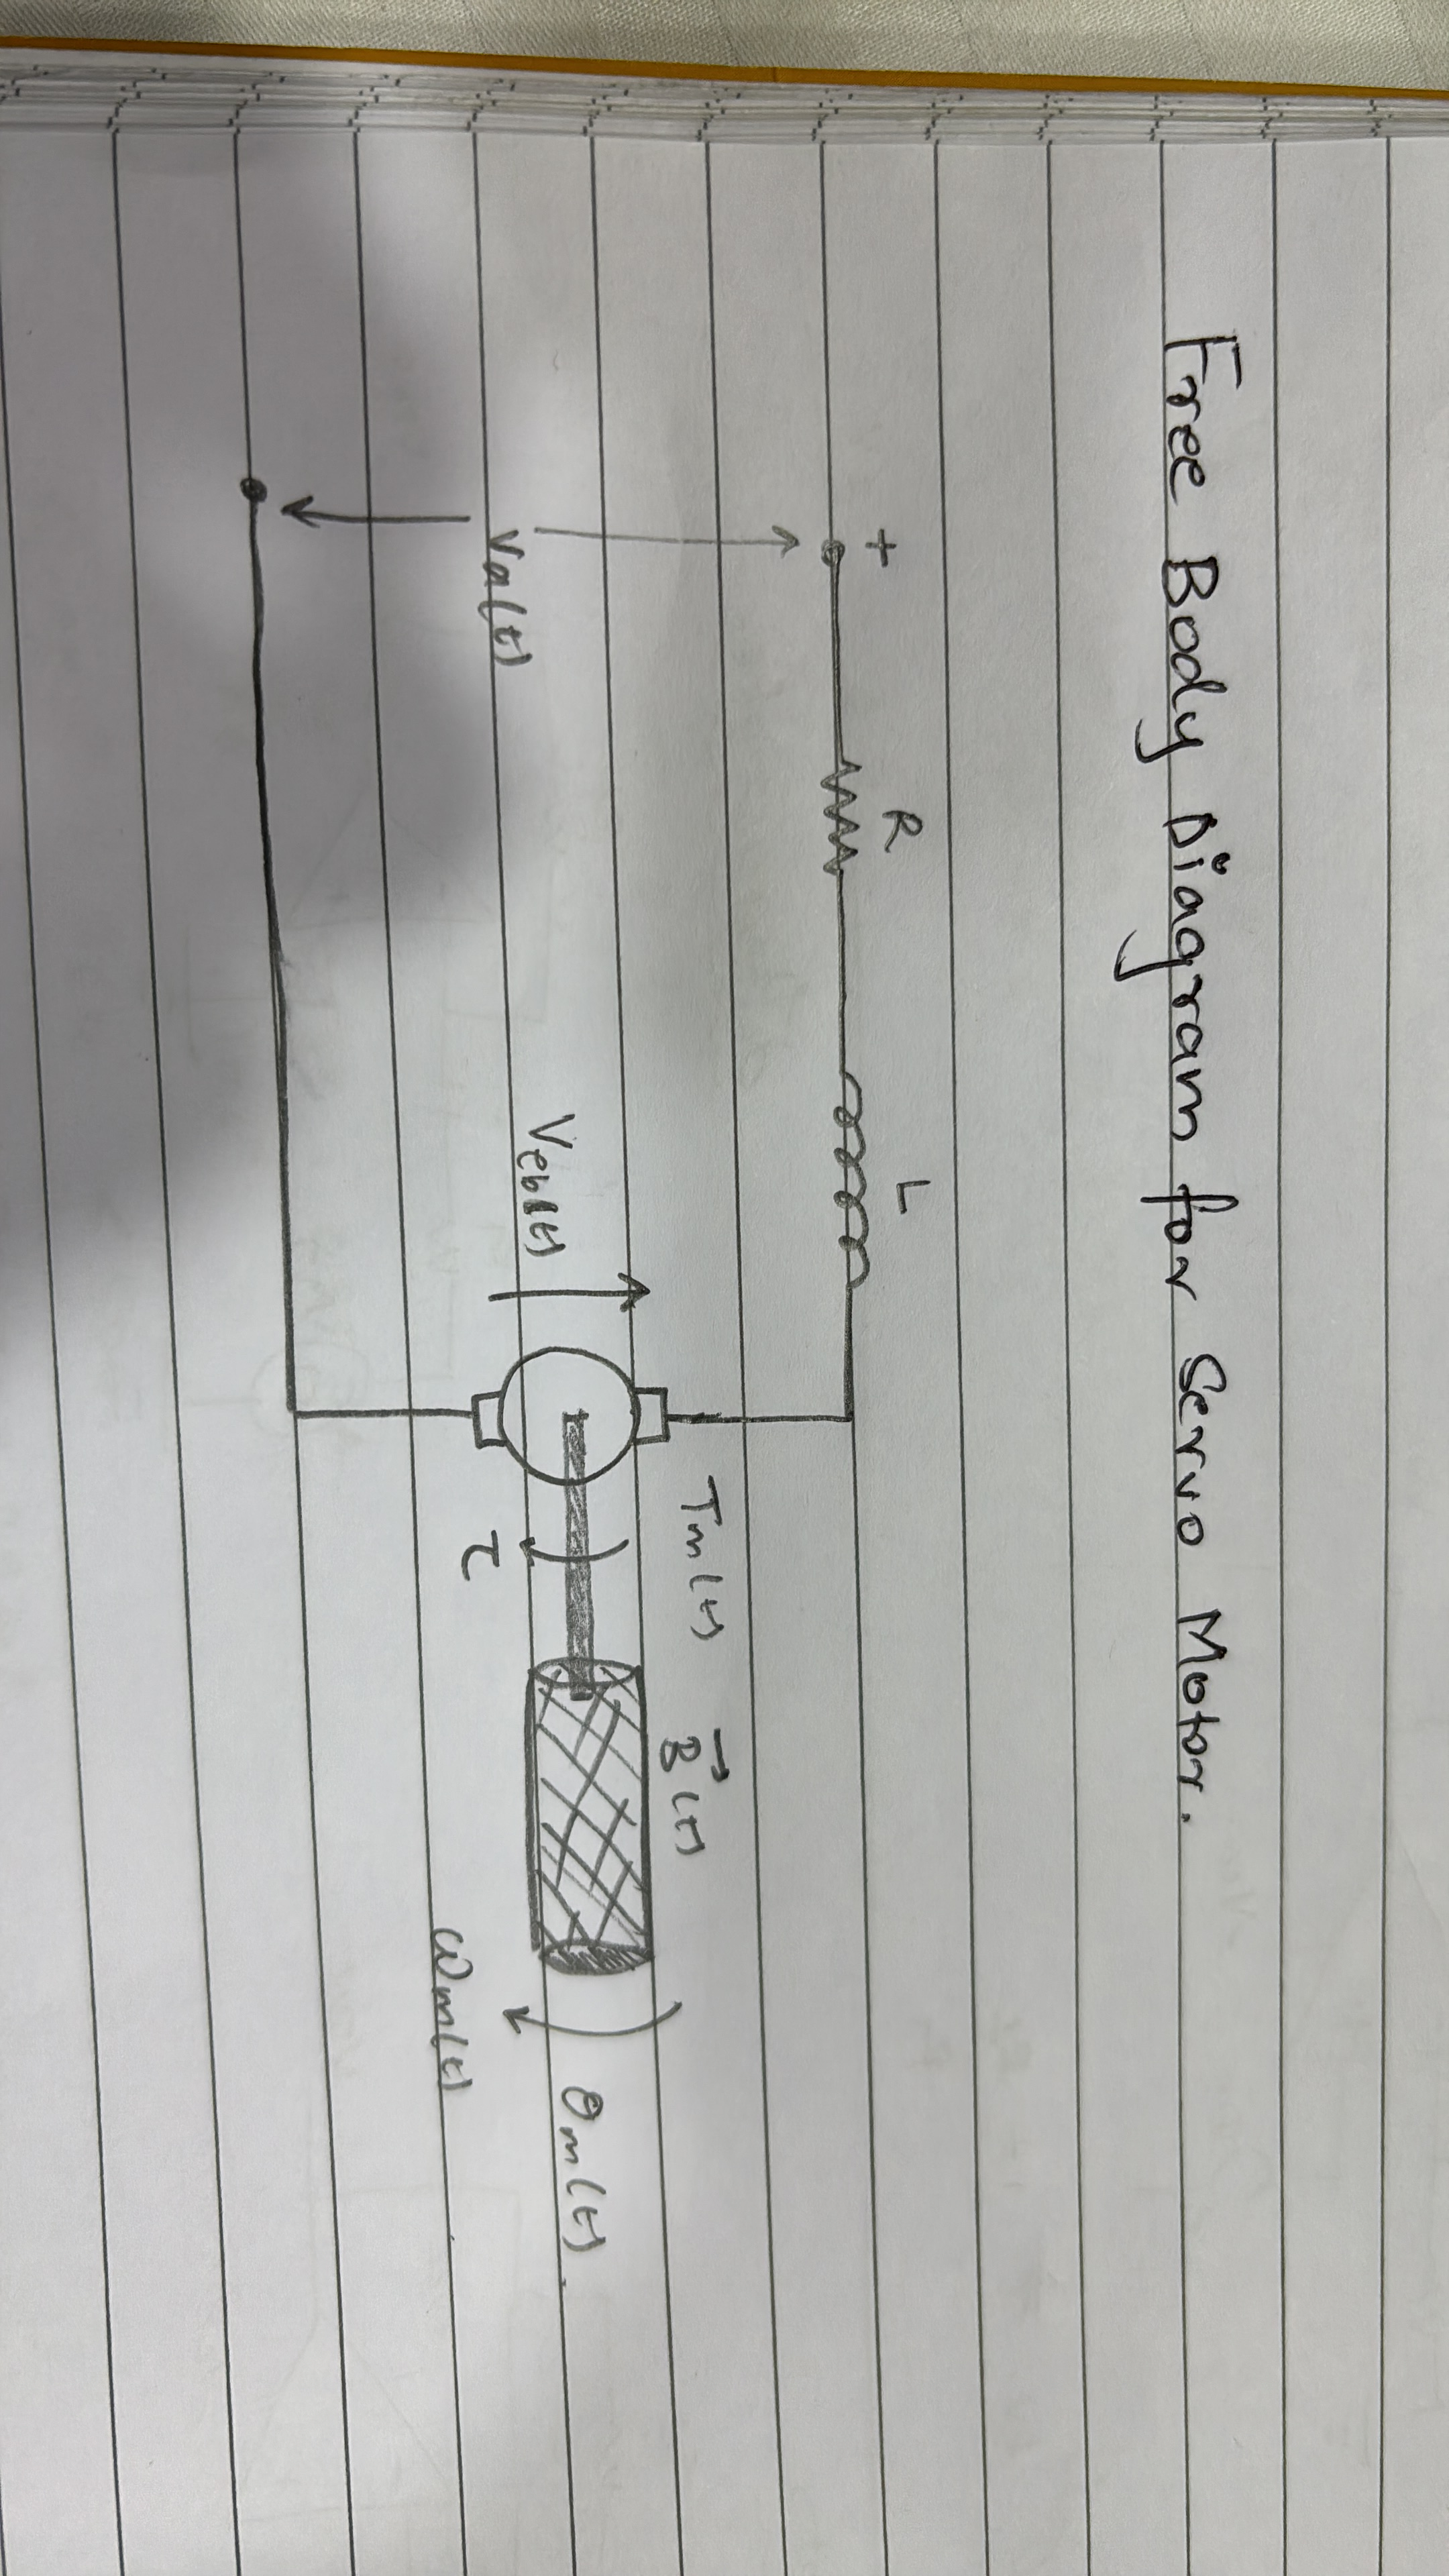 Free Body Diagram for Servo Motor.
+
R
L
Va(t)
Veb(t)
Tm(t)
τ
B(t)
θm(t)
ωm(t)